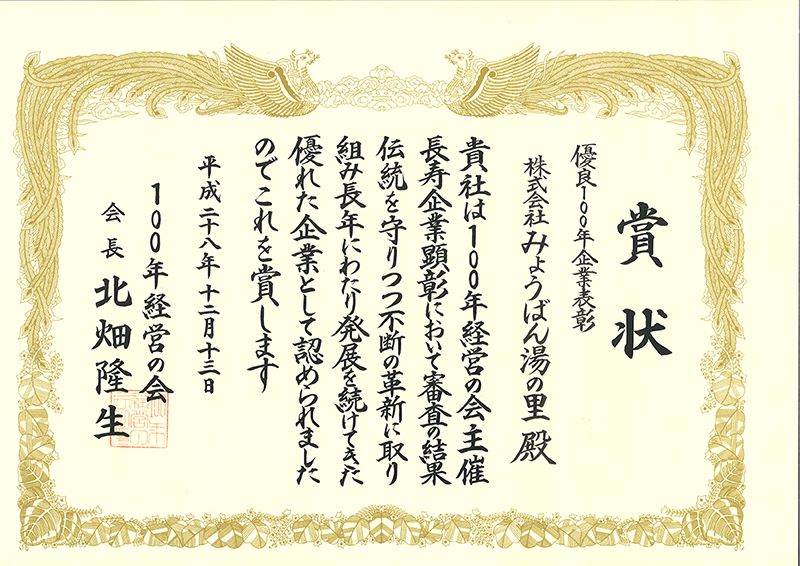 賞状
優良100年企業表彰
株式会社みょうばん湯の里 殿
貴社は100年経営の会主催
長寿企業顕彰において審査の結果
伝統を守りつつ不断の革新に取り
組み長年にわたり発展を続けてきた
優れた企業として認められました
のでこれを賞します
平成二十八年十二月十三日
100年経営の会
会長 北畑隆生